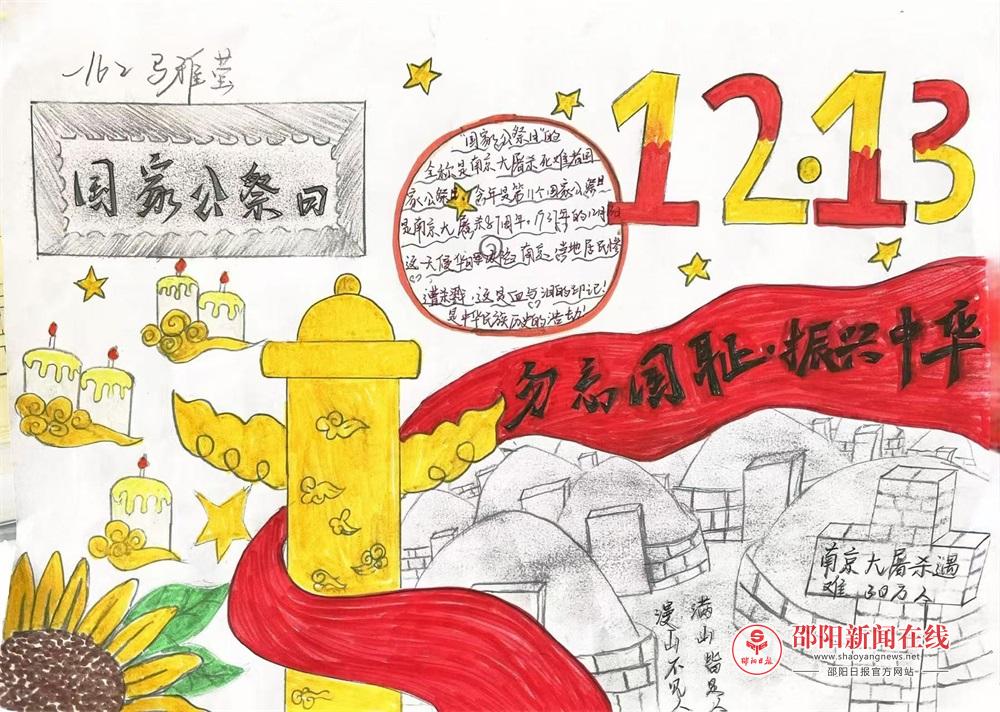 162 马雅莹
国家公祭日
12.13
"国家公祭日"的
全称是南京大屠杀死难者国
家公祭日,今年是第11个国家公祭日
是南京大屠杀87周年。1937年的12月
这一天侵华日军攻占南京,当地居民惨
遭杀戮,这是血与泪的印记!
是中华民族历史的浩劫!
勿忘国耻·振兴中华
南京大屠杀遇
难 30万人
满山皆是人
漫山不见人
邵阳新闻在线
www.shaoyangnews.net
邵阳日报官方网站
邵阳日报